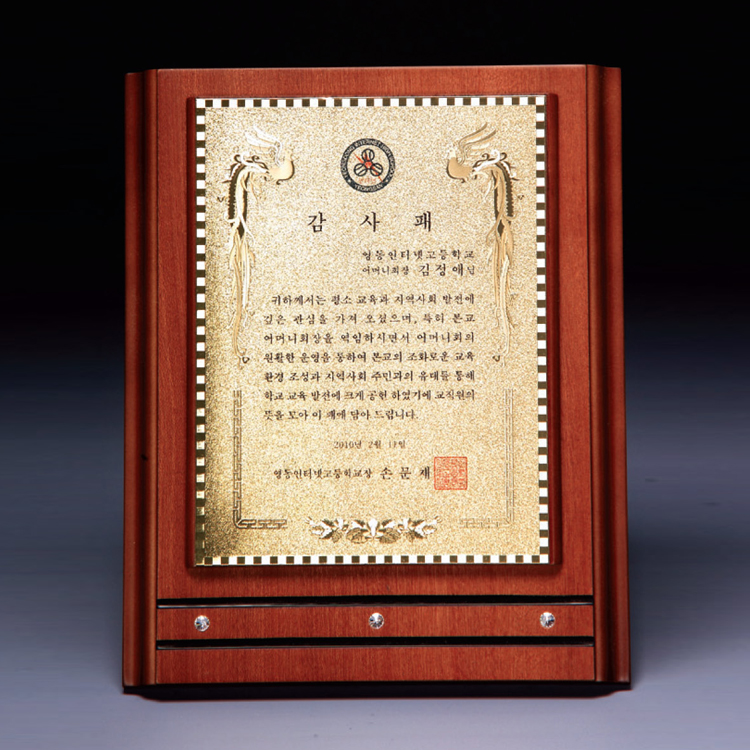 감 사 패
영동인터넷고등학교
어머니회장 김정애님
귀하께서는 평소 교육과 지역사회 발전에
깊은 관심을 가져 오셨으며, 특히 본교
어머니회장을 역임하시면서 어머니회의
원활한 운영을 통하여 본교의 조화로운 교육
환경 조성과 지역사회 주민과의 유대를 통해
학교 교육 발전에 크게 공헌 하였기에 교직원의
뜻을 모아 이 패에 담아 드립니다.
2010년 2월 11일
영동인터넷고등학교장 손 문 재